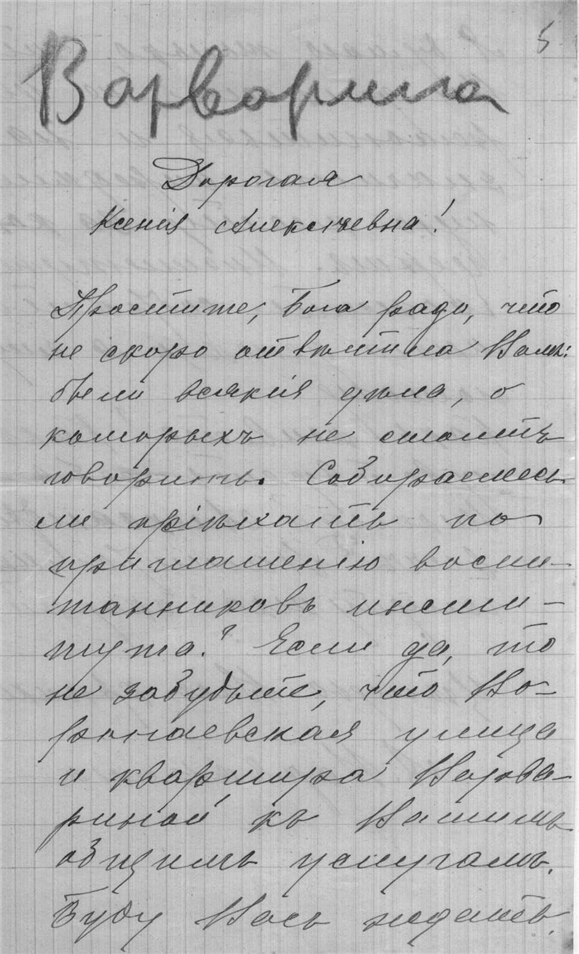 5
Варварина
Дорогая
Ксенія Алексѣевна!
Простите, Бога ради, что
не скоро отвѣтила Вамъ:
были всякія дѣла, о
которыхъ не стоитъ
говорить. Собираетесь
ли пріѣхать по
приглашенію воспи-
танниковъ инсти-
тута? Если да, то
не забудьте, что
улица
и квартира Варва-
риной къ Вашимъ
общимъ услугамъ.
Буду Васъ ждать.